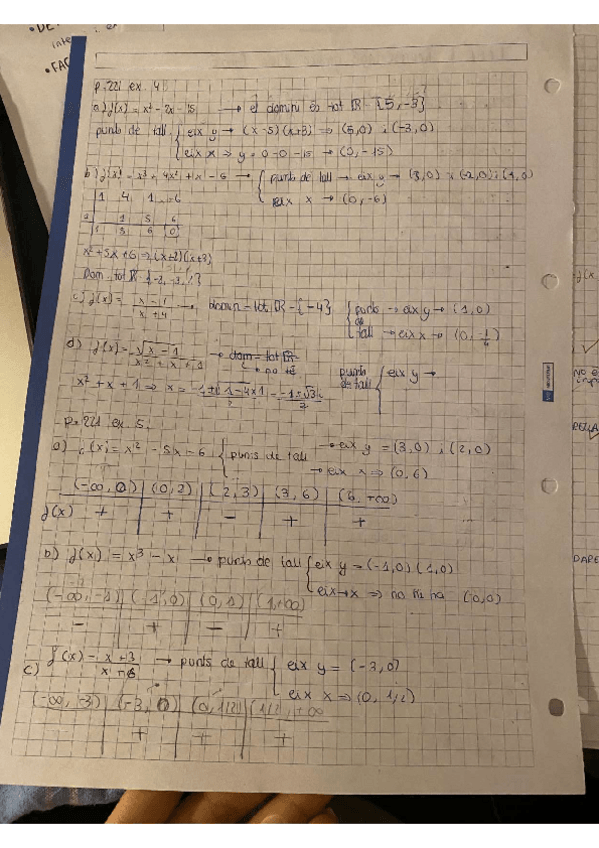 p.221 ex. 4
a) f(x) = x² - 2x - 15 → el domini és tot ℝ - {5, -3}
punts de tall { eix y → (x-5)(x+3) ⇒ (5,0) i (-3,0)
eix x ⇒ y = 0 - 0 - 15 → (0, -15)
b) f(x) = x³ + 4x² + x - 6 → { punts de tall → eix y → (3,0) i (-2,0) i (1,0)
eix x → (0,-6)
1 4 1 -6
1 5 6
1 5 6 0
x² + 5x + 6 ⇒ (x+2)(x+3)
Dom = tot ℝ
c) f(x) = x - 1 / x + 4 → domin = tot ℝ - {-4} { punts de tall → eix y → (1,0)
→ eix x → (0, -1/4)
d) f(x) = √x - 1 / x² + x + 1 → dom = tot ℝ
↳ no té
punts de tall { eix y →
x² + x + 1 ⇒ x = -1 ± √1 - 4×1 / 2 = -1 ± √3i / 2
p. 221 ex. 5
a) f(x) = x² - 5x - 6 { punts de tall → eix y = (3,0) i (2,0)
→ eix x ⇒ (0,6)
(-∞, 0) | (0,2) | (2,3) | (3,6) | (6, +∞)
f(x) + | + | - | + | +
b) f(x) = x³ - x → punts de tall { eix y = (-1,0) (1,0)
eix x ⇒ no hi ha (0,0)
(-∞, -1) | (-1,0) | (0,1) | (1,+∞)
- | + | - | +
c) f(x) = x + 3 / x + 6 → punts de tall { eix y = (-3,0)
eix x ⇒ (0, 1/2)
(-∞, -3) | (-3, 0) | (0, 1/2) | (1/2, +∞
+ | + | +